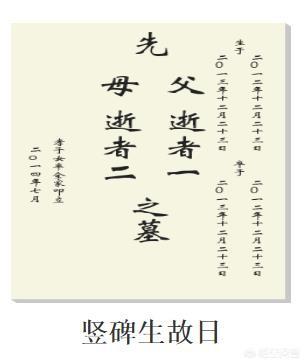 生于
二〇一二年十二月二十三日
二〇一三年十二月二十三日
卒于
二〇一二年十二月二十三日
二〇一三年十二月二十三日
先
父逝者一
母逝者二
之墓
孝子女率全家叩立
二〇一四年七月
竖碑生故日